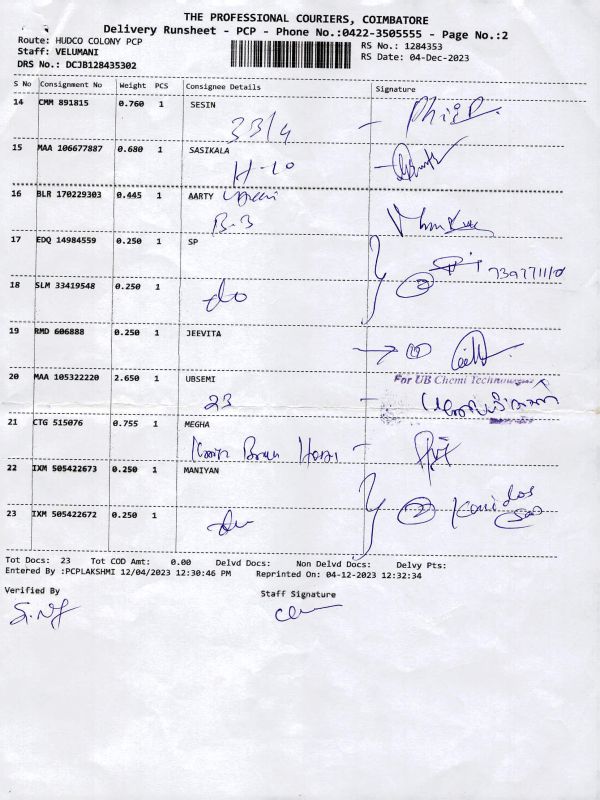 THE PROFESSIONAL COURIERS, COIMBATORE
Delivery Runsheet - PCP - Phone No.:0422-3505555 - Page No.:2
Route: HUDCO COLONY PCP
RS No.: 1284353
Staff: VELUMANI
RS Date: 04-Dec-2023
DRS No.: DCJB128435302
S No Consignment No Weight PCS Consignee Details Signature
14 CMM 891815 0.760 1 SESIN
33/4
15 MAA 106677887 0.680 1 SASIKALA
H-10
16 BLR 170229303 0.445 1 AARTY
B-3
17 EDQ 14984559 0.250 1 SP
2
18 SLM 33419548 0.250 1
do
19 RMD 606888 0.250 1 JEEVITA
20 MAA 105322220 2.650 1 UBSEMI
For UB Chemi
23
21 CTG 515076 0.755 1 MEGHA
22 IXM 505422673 0.250 1 MANIYAN
2
23 IXM 505422672 0.250 1
Tot Docs: 23 Tot COD Amt: 0.00 Delvd Docs: Non Delvd Docs: Delvy Pts:
Entered By :PCPLAKSHMI 12/04/2023 12:30:46 PM Reprinted On: 04-12-2023 12:32:34
Verified By
Staff Signature